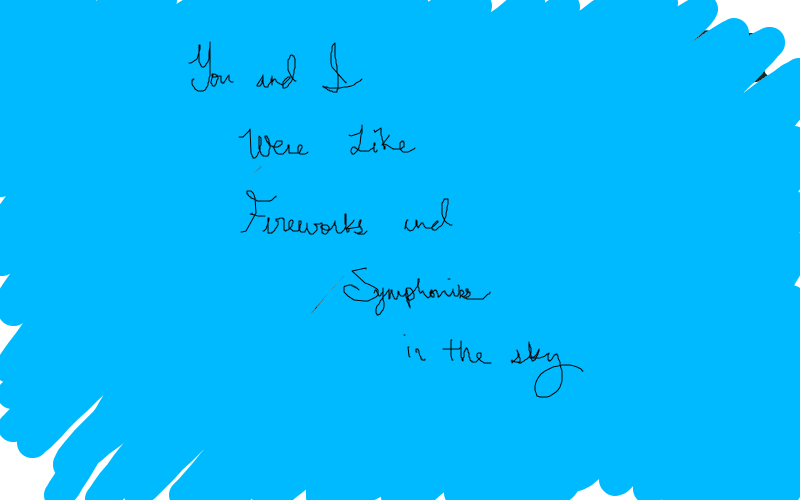 You and I
Were Like
Fireworks and
Symphonies
in the sky